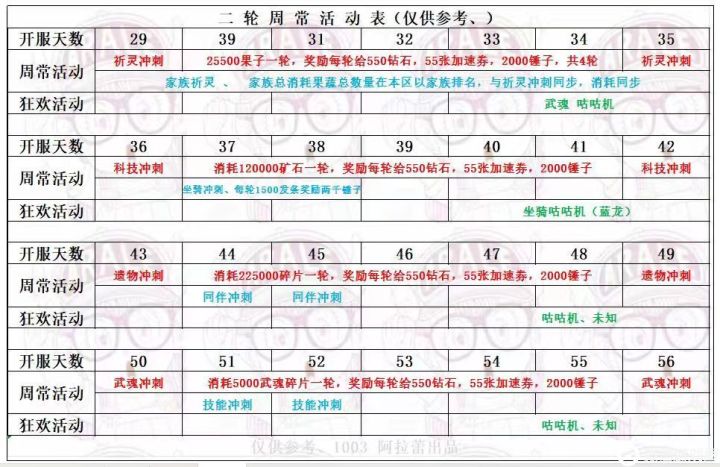 二 轮 周 常 活 动 表（仅供参考、）
开服天数 29 39 31 32 33 34 35
周常活动 祈灵冲刺 25500果子一轮，奖励每轮给550钻石，55张加速券，2000锤子，共4轮 祈灵冲刺
家族祈灵 、 家族总消耗果蔬总数量在本区以家族排名，与祈灵冲刺同步，消耗同步
狂欢活动 武魂 咕咕机
开服天数 36 37 38 39 40 41 42
周常活动 科技冲刺 消耗120000矿石一轮，奖励每轮给550钻石，55张加速券，2000锤子 科技冲刺
坐骑冲刺、每轮1500发条奖励两千锤子
狂欢活动 坐骑咕咕机（蓝龙）
开服天数 43 44 45 46 47 48 49
周常活动 遗物冲刺 消耗225000碎片一轮，奖励每轮给550钻石，55张加速券，2000锤子 遗物冲刺
同伴冲刺 同伴冲刺
狂欢活动 咕咕机、未知
开服天数 50 51 52 53 54 55 56
周常活动 武魂冲刺 消耗5000武魂碎片一轮，奖励每轮给550钻石，55张加速券，2000锤子 武魂冲刺
技能冲刺 技能冲刺
狂欢活动 咕咕机、未知
仅供参考、1003 阿拉蕾出品